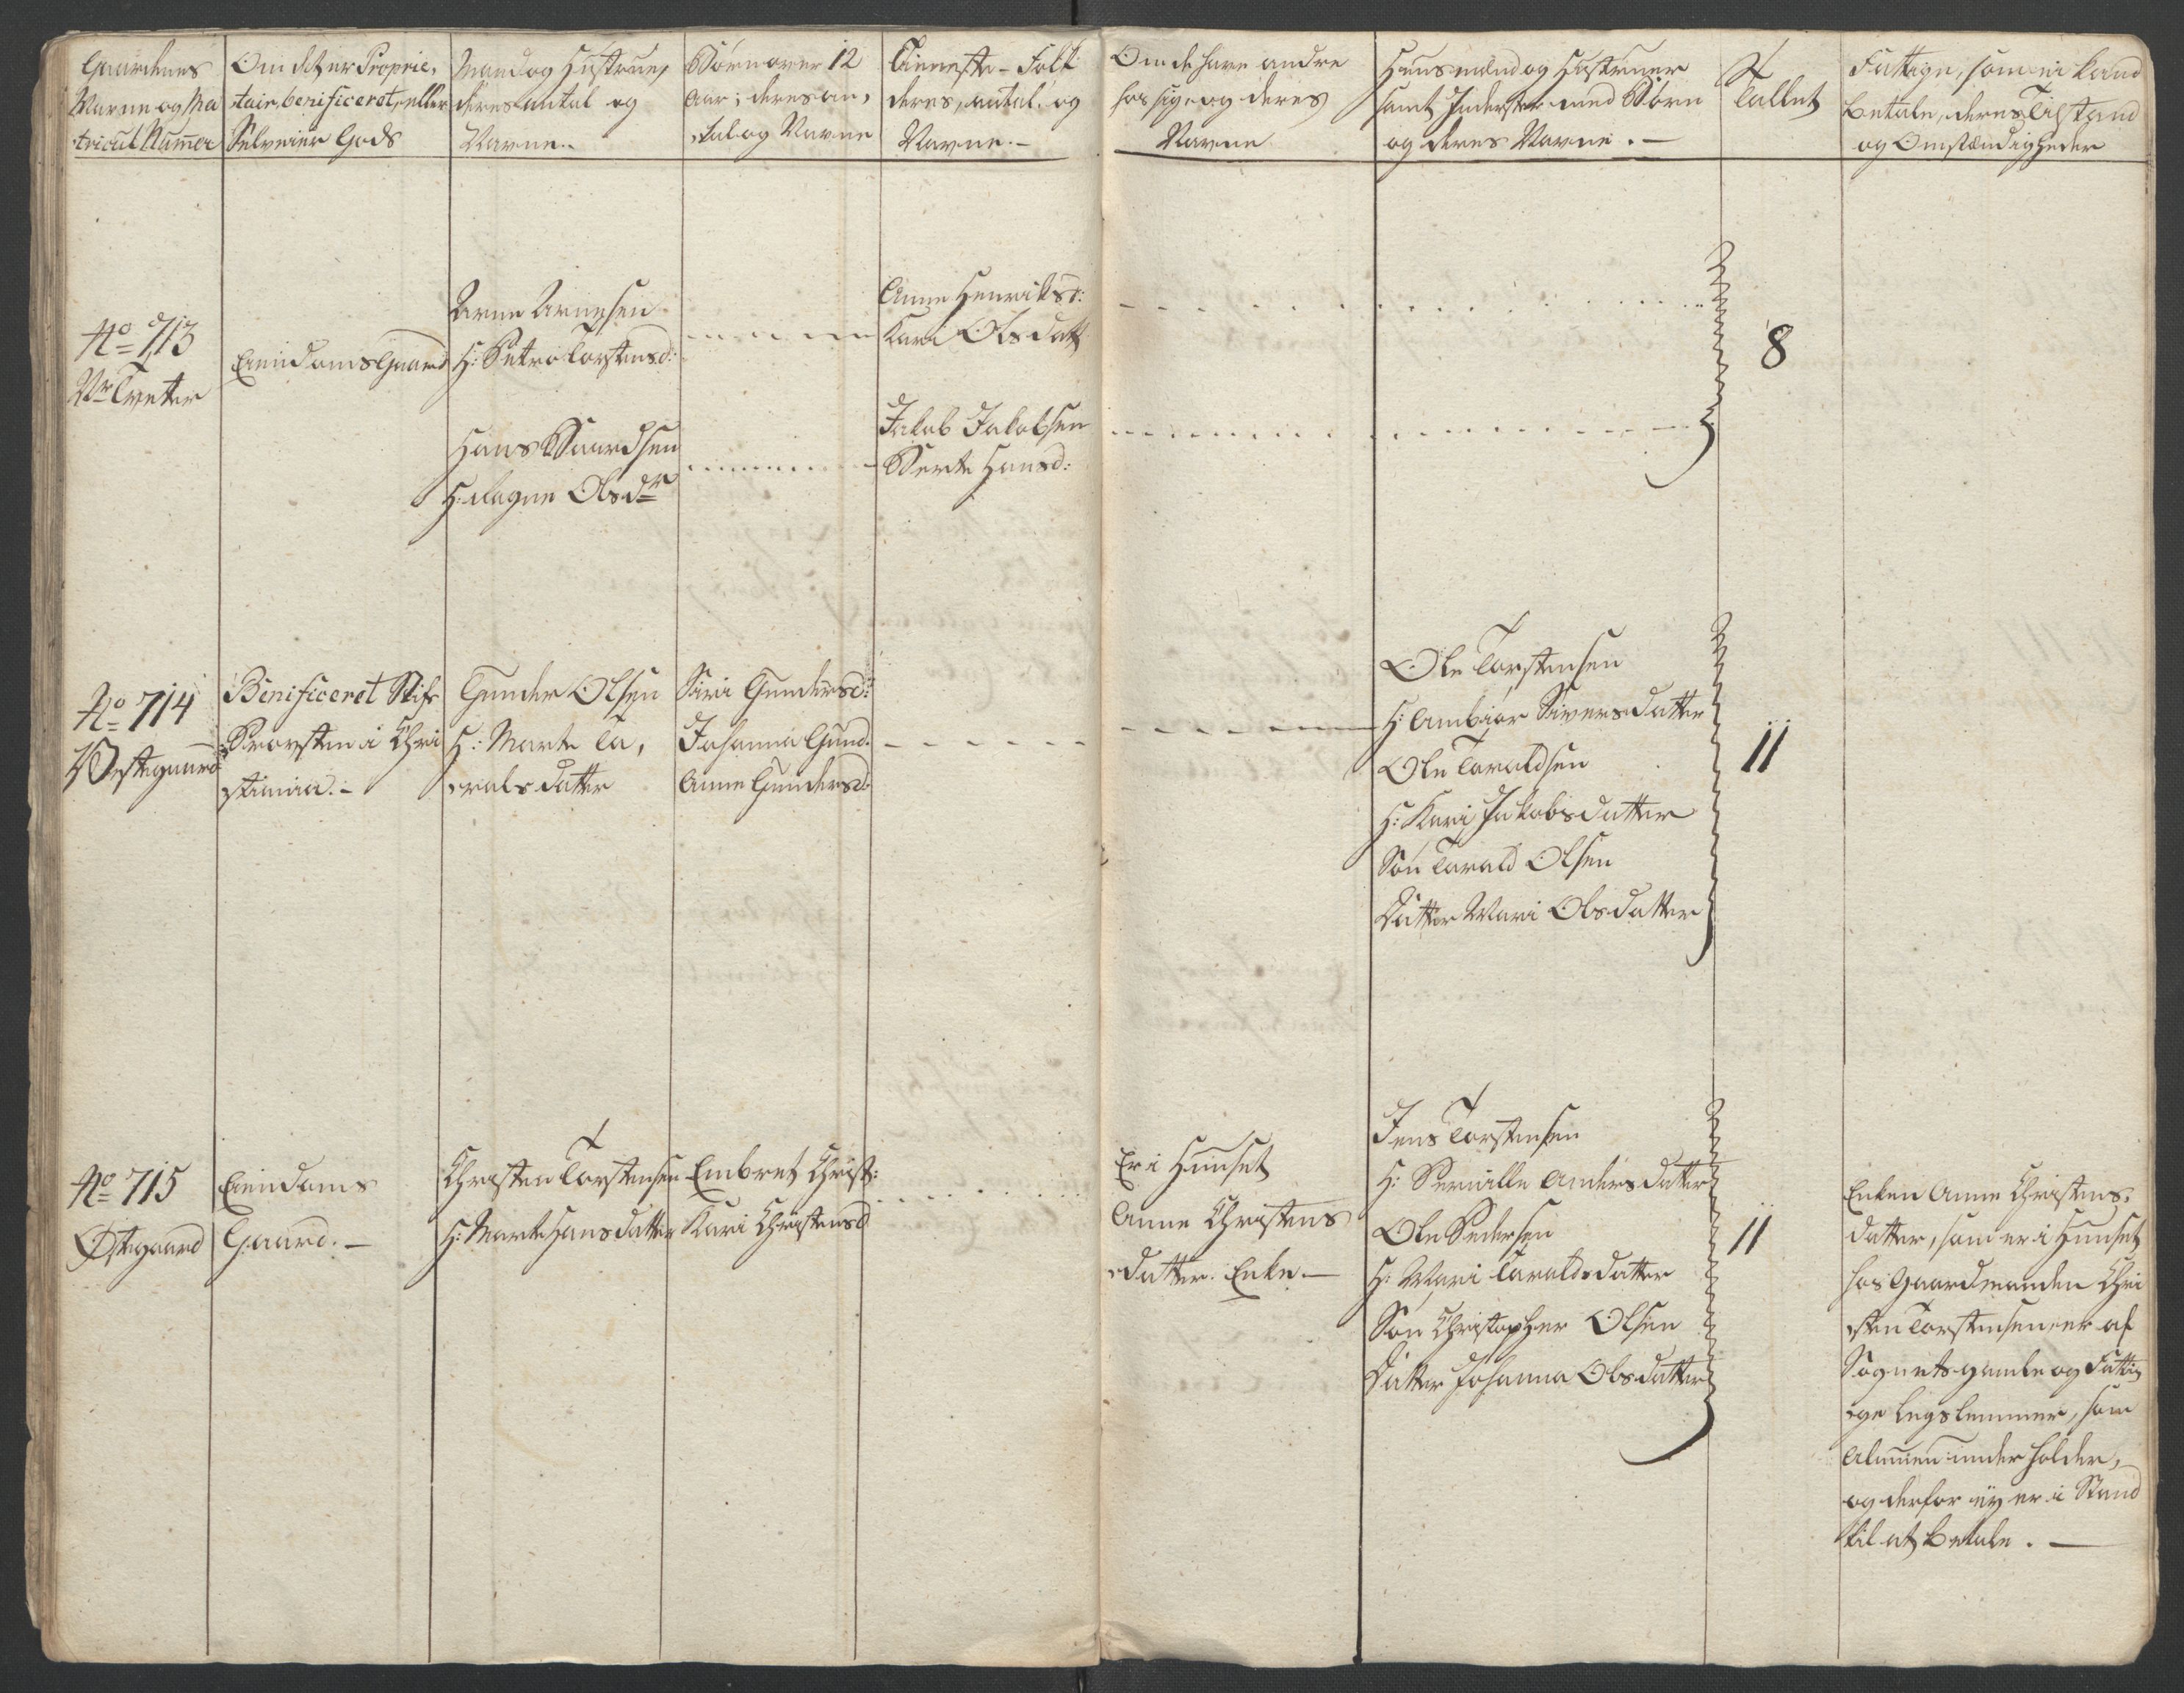 Gaardenes
Navne og Ma
tricul Numer
Om det er Proprie,
tair, benificeret, eller
Selveier Gods
Mand og Hustrue,
deres antal og
Navne.
Børn over 12
Aar; deres an,
tal og Navne
Tieneste-Folk
deres, antal, og
Navne.-
Om de have andre
hos sig og deres
Navne
Huusmænd og Hustruer
samt Inderster med Børn
og deres Navne.-
Tallet
Fattige, som ei kand
betale, deres Tilstand
og Omstændigheder
No 713
Nr Tveter
Eiendoms Gaard
Arne Arnesen
H: Petro Torstensd:
Anne Henriksd:
Kari Olsdatt
8
Hans Baardsen
H: Aagne Olsdr
Jakob Jakobsen
Berte Hansd:
No 714
Westegaard
Benificeret Stifs
Provsten i Chri
stiania.-
Gunder Olsen
H: Marte Ta,
ralsdatter
Siri Gundersd:
Johanna Gund.
Anne Gundersd:
Ole Torstensen
H: Ambiør Siversdatter
Ole Taraldsen
H: Kari Jakobsdatter
Søn Tarald Olsen
Datter Mari Olsdatter
11
No 715
Østegaard
Eiendoms
Gaard.-
Christen Torstensen
H: Marte Hansdatter
Embret Christ:
Kari Christensd
Er i Huuset
Anne Christens
datter. Enke.-
Jens Torstensen
H: Pernille Andersdatter
Ole Pedersen
H: Mari Taraldsdatter
Søn Christopher Olsen
Datter Johanna Olsdatter
11
Enken Anne Christens,
datter, som er i Huuset
hos Gaardmanden Chri
sten Torstensen, er af
Sognets gamle og Fatti
ge Legslemmer, som
Almuen underholder,
og derfor ey er i Stand
til at betale.-